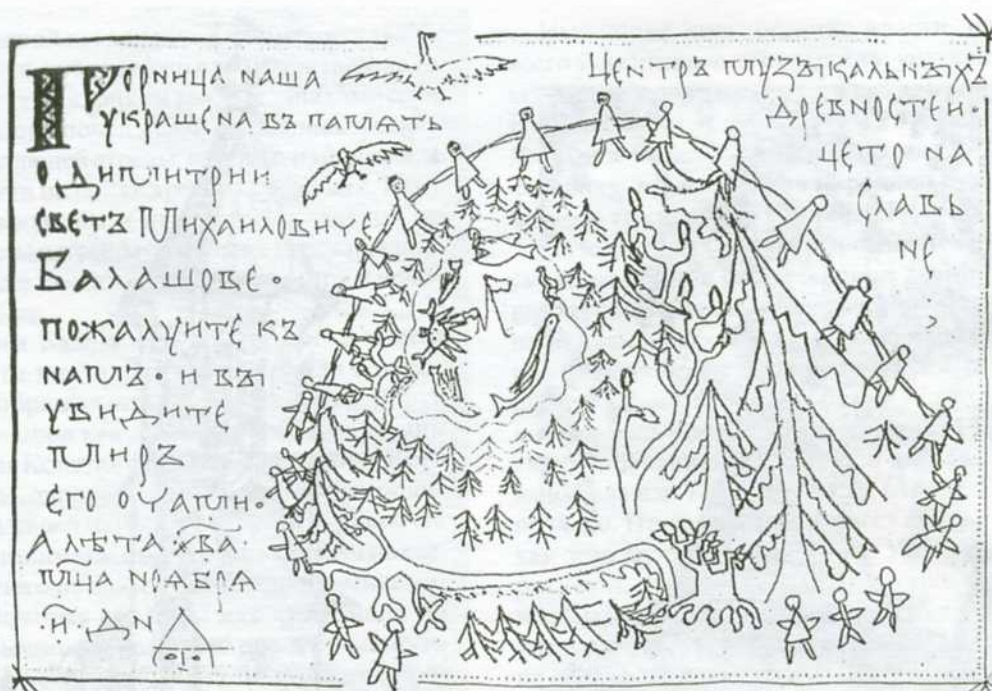 Горница наша
украшена въ память
о Димитрии
светъ Михаиловиче
Балашове.
пожалуите къ
намъ. и вы
увидите
миръ
его очами.
А лѣта ҂вa.
мца ноября
и. дн
центръ музыкальныхъ
древностеи.
цето на
славь
не